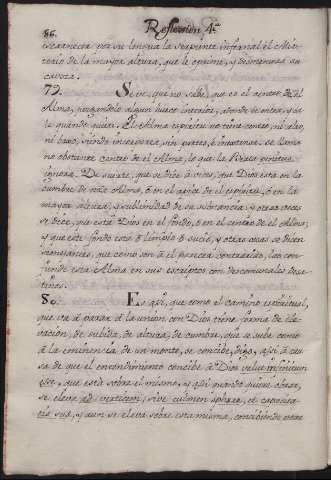 86.
Reflexion 4ª
escarnecia por su lengua la serpiente infernal el Mis-
terio de la mayor altura, que la oprime, y desmenuza su
caveza.
79. Se ve, que no sabe, que es el centro de el
Alma, juzgandolo algun hueco interior, donde se entra, y es-
ta quando quiere. El Alma espiritu no tiene centro, ni alto,
ni baxo, siendo incorporea, sin partes, é inextensa. se llama
no obstante centro de el Alma, lo que la
ignora. De suerte, que se dice á veces, que Dios esta en la
cumbre de este Alma, ó en el apice de el espiritu, ó en la
mayor altura, y sublimidad de su substancia, y otras veces
se dice, que está Dios en el fondo, ó en el centro de el Alma;
y que este fondo está ó limpio ó sucio, y otras cosas se dicen
semejantes, que como son á el parecer contrarias, las con-
funde esta Alma en sus escriptos con descomunales desa-
tinos.
80. Es asi, que como el camino espiritual,
que vá á parar á la union con Dios tiene forma de ele-
vacion, de subida, de altura, de cumbre, que se sube como
á la eminencia de un monte, se concibe, digo, assi á cau-
sa de que el entendimiento concibe á Dios velut infinitum
que está sobre el mismo, y assi quando quiere obrar,
se eleva ad verticem, sive culmen sphæræ, et capacita-
tis suæ, y aun se eleva sobre esta misma, concibiendo entre